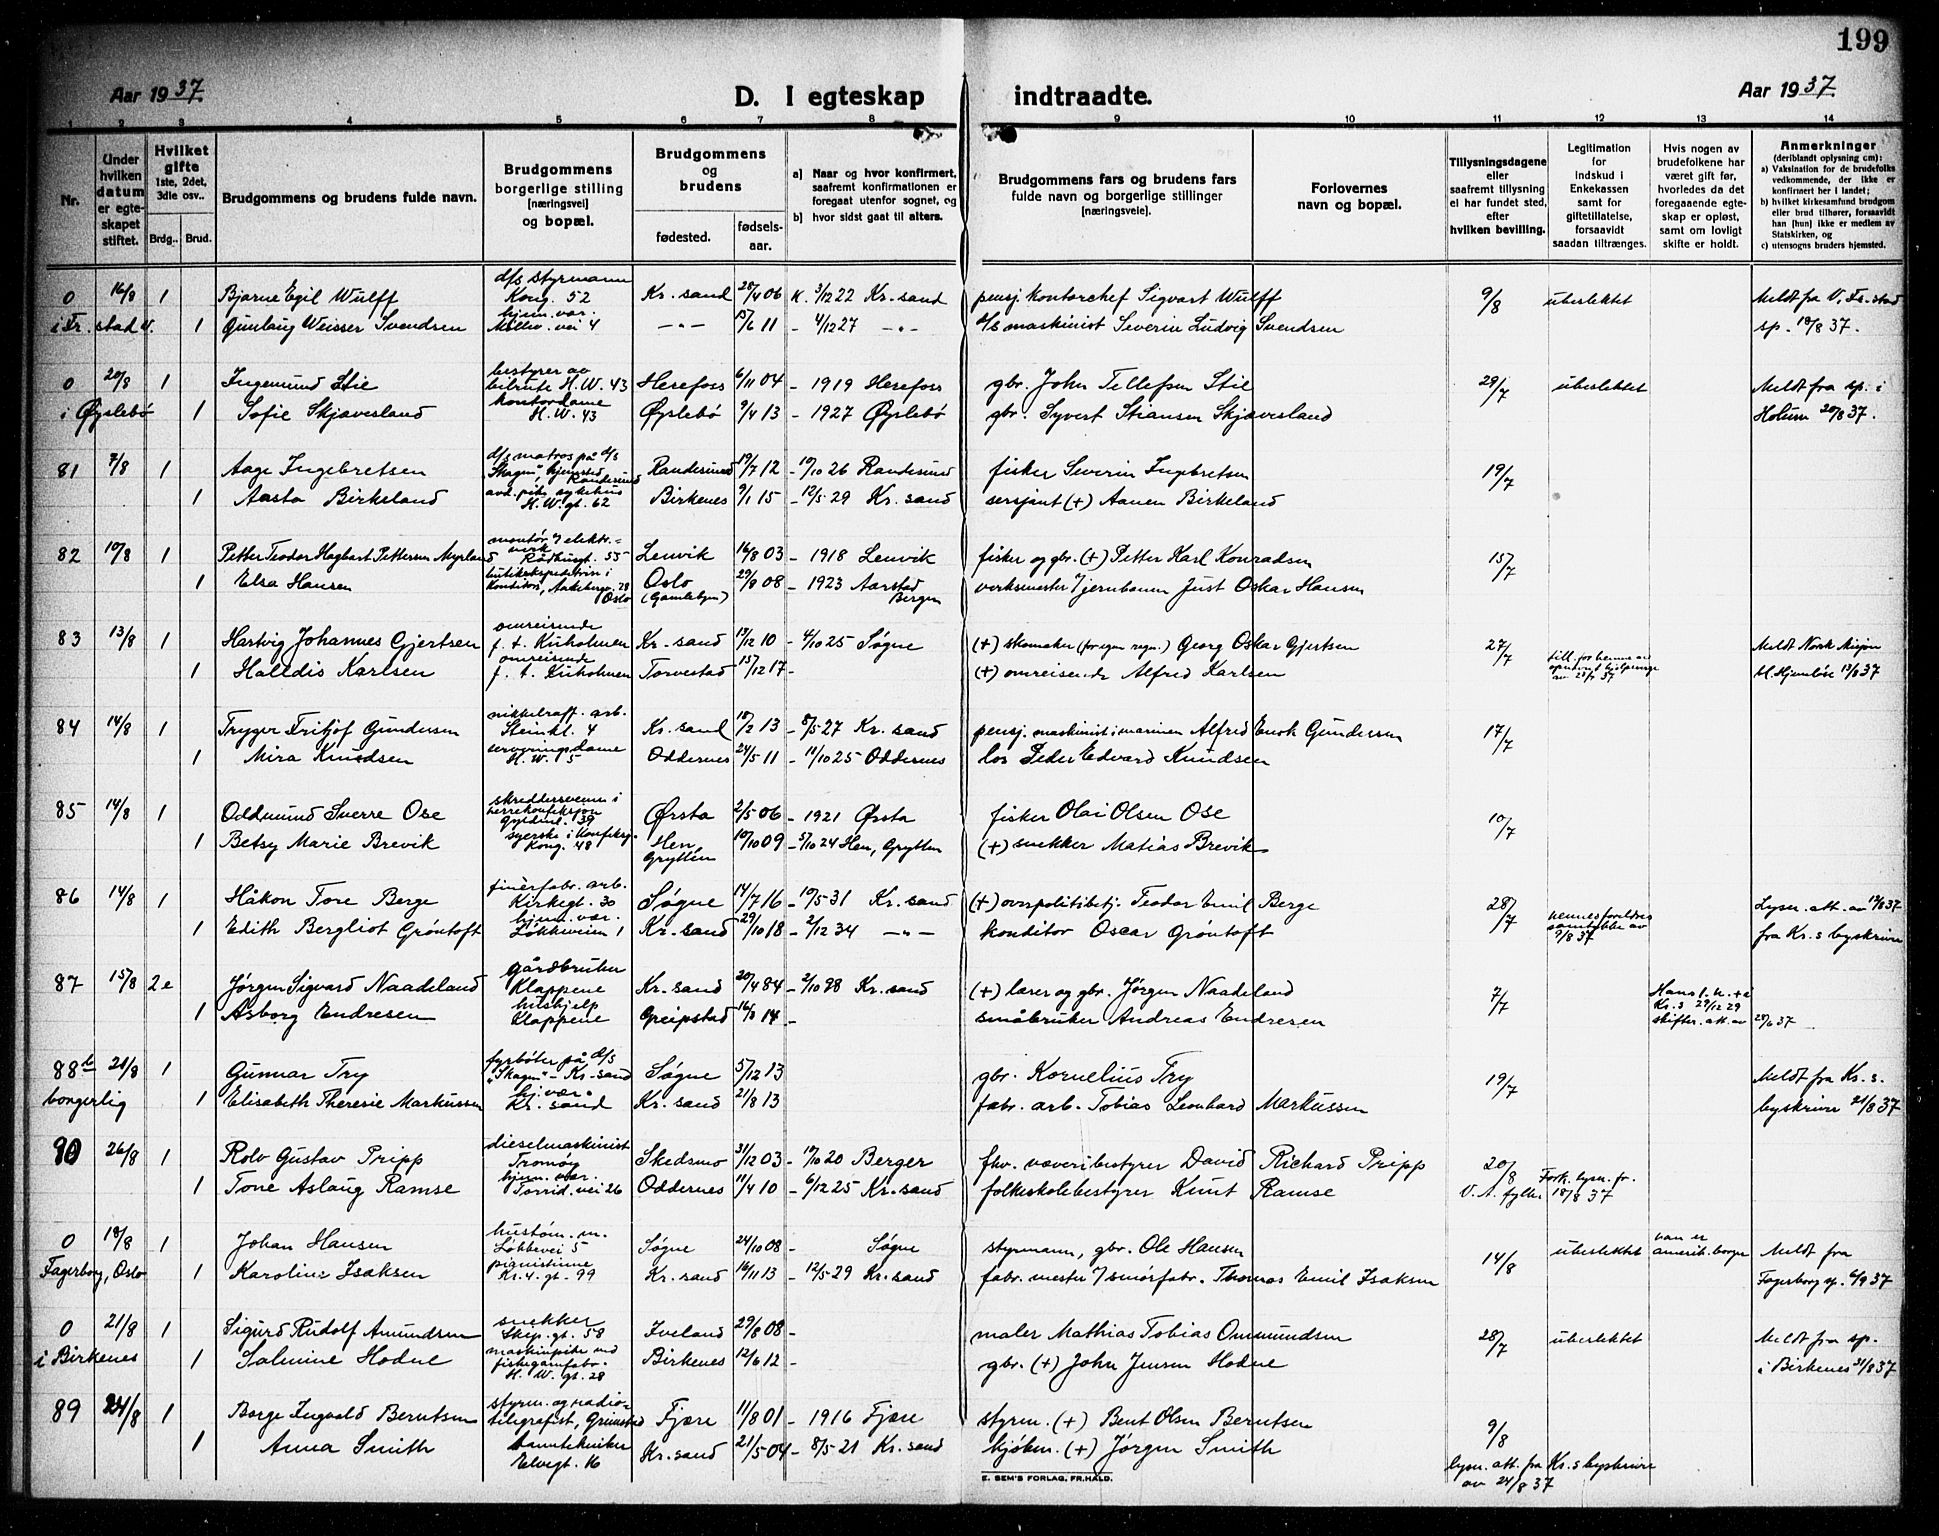 199
Aar 1937. D. I egteskap indtraadte. Aar 1937.
1 2 3 4 5 6 7 8 9 10 11 12 13 14
Nr.
Under hvilken datum er egteskapet stiftet.
Hvilket gifte 1ste, 2det, 3die osv..
Brdg.. Brud.
Brudgommens og brudens fulde navn.
Brudgommens borgerlige stilling [næringsvei] og bopæl.
Brudgommens og brudens
fødested. fødsels-aar.
a) Naar og hvor konfirmert, saafremt konfirmationen er foregaat utenfor sognet, og
b) hvor sidst gaat til alters.
Brudgommens fars og brudens fars fulde navn og borgerlige stillinger [næringsveie].
Forlovernes navn og bopæl.
Tillysningsdagene eller saafremt tillysning ei har fundet sted, efter hvilken bevilling.
Legitimation for indskud i Enkekassen samt for giftetillatelse, forsaavidt saadan tiltrænges.
Hvis nogen av brudefolkene har været gift før, hvorledes da det foregaaende egteskap er opløst, samt om lovligt skifte er holdt.
Anmerkninger (deriblandt oplysning om):
a) Vaksination for de brudefolks vedkommende, der ikke er konfirmert her i landet;
b) hvilket kirkesamfund brudgom eller brud tilhører, forsaavidt han [hun] ikke er medlem av Statskirken, og
c) utensogns bruders hjemsted.
0 16/8 1 Bjarne Egil Wulff d/s styrmann Kong. 52 Kr.sand 28/4 06 K. 3/12 22 Kr.sand pensj. kontorchef Sigvart Wulff 9/8 ubeslektet Meldt fra V. Fr.stad
i Fr.stad v. 1 Gunlaug Weisser Svendsen hjem. vær. Møllev. vei 4 —"— 15/6 11 - 4/12 27 -"- d/s maskinist Severin Ludvig Svendsen sp. 18/8 37.
0 20/8 1 Ingemund Stie bestyrer av bilrute H.W. 43 Herefoss 6/11 04 - 1919 Herefoss gbr. John Tellefsen Stie 29/7 ubeslektet Meldt fra sp. i
i Øyslebø 1 Sofie Skjævesland kontordame H.W. 43 Øyslebø 9/4 13 - 1927 Øyslebø gbr. Syvert Stiansen Skjævesland Holum 20/8 37.
81 7/8 1 Aage Ingebretsen d/s matros på d/s "Skagen", hjemsted Randesund Randesund 19/7 12 - 10/10 26 Randesund fisker Severin Ingebretsen 19/7
1 Aasta Birkeland avd. pike sykehus H.W.gt. 62 Birkenes 9/1 15 - 12/5 29 Kr.sand sersjant (+) Aanen Birkeland
82 10/8 1 Petter Teodor Hagbart Pettersen Myrland montør v/ elektr.verk Rådhusgt. 55 Lenvik 16/8 03 - 1918 Lenvik fisker og gbr. (+) Petter Karl Konradsen 15/7
1 Elsa Hansen Oslo (Gamlebyen) 29/8 08 - 1923 Aarstad Bergen verksmester v/jernbanen Just Oskar Hansen
83 13/8 1 Hartvig Johannes Gjertsen omreisende f. t. Kuholmen Kr.sand 13/12 10 - 4/10 25 Søgne (+) skomaker (for egen regn.) Georg Oskar Gjertsen 27/7 Meldt Norsk Misjon
1 Halldis Karlsen omreisende f. t. Kuholmen Torvestad 15/12 17 - (+) omreisende Alfred Karlsen bl. Hjemløse 13/8 37
84 14/8 1 Trygve Fritjof Gundersen nikkelraff. arb. Steinkl. 4 Kr.sand 18/2 13 - 8/5 27 Kr.sand pensj. maskinist i marinen Alfred Enok Gundersen 17/7
1 Mira Knudsen serveringsdame H.W. 5 Oddernes 24/5 11 - 11/10 25 Oddernes los Peder Edvard Knudsen
85 14/8 1 Oddmund Sverre Ose skreddersvenn i herrekonfeksjon Gyldenl. 39 Ørsta 2/5 06 - 1921 Ørsta fisker Olai Olsen Ose 10/7
1 Betsy Marie Brevik syerske i konfeksj. Kong. 48 Hen, Grytten 10/10 09 - 5/10 24 Hen, Grytten (+) snekker Matias Brevik
86 14/8 1 Håkon Tore Berge finérfabr. arb. Kirkegt. 30 Søgne 14/7 16 - 10/5 31 Kr.sand (+) overpolitibetj. Teodor Emil Berge 28/7 Lysn. att. av 14/8 37
1 Edith Bergliot Grøntoft hjem. vær. Løkkeveien 1 Kr.sand 29/10 18 - 2/12 34 —"— konditor Oscar Grøntoft hennes foreldres samtykke av 9/8 37 fra Kr.s byskriver
87 15/8 2e Jørgen Sigvard Naadeland gårdbruker Klappene Kr.sand 20/4 84 - 2/10 98 Kr.sand (+) lærer og gbr. Jørgen Naadeland 7/7 Hans f. h. + i Kr.s 29/12 29
1 Asborg Endresen hushjelp Klappene Greipstad 16/8 14 - småbruker Andreas Endresen skifter. att. av 28/6 37
88b 21/8 1 Gunnar Try fyrbøter på d/s "Skagen" - Kr.sand Søgne 5/12 13 gbr. Kornelius Try 19/7 Meldt fra Kr.s.
borgerlig 1 Elisabeth Theresie Markussen hj. vær. Kr.sand Kr.sand 21/8 13 fabr. arb. Tobias Leonhard Markussen byskriver 21/8 37
90 26/8 1 Rolv Gustav Pripp dieselmaskinist Tromøy Skedsmo 31/12 03 - 17/10 20 Berger fhv. væveribestyrer David Richard Pripp 20/8 Fork. lysn. fr.
1 Tone Aslaug Ramse hjem. vær. Torrid. vei 26 Oddernes 11/4 10 - 6/12 25 Kr.sand folkeskolebestyrer Knut Ramse V. A. fylke 18/8 37
0 18/8 1 Johan Hansen hustøm. m. Løkkevei 5 Søgne 24/10 08 - Søgne styrmann, gbr. Ole Hansen 14/8 ubeslektet han er amerik. borger Meldt fra
Fagerborg, Oslo 1 Karoline Isaksen pianistinne Kr. 4. gt. 99 Kr.sand 16/11 13 - 12/5 29 Kr.sand fabr. mester v/smørfabr. Thomas Emil Isaksen Fagerborg sp. 6/9 37
0 21/8 1 Sigurd Rudolf Amundsen snekker Skip. gt. 58 Iveland 29/8 08 - maler Mathias Tobias Ommundsen 28/7 ubeslektet Meldt fra sp.
i Birkenes 1 Salmine Hodne maskinpike ved fiskegarnfabr. H.W. gt. 28 Birkenes 12/6 12 - gbr. (+) John Jensen Hodne i Birkenes 31/8 37
89 24/8 1 Borge Ingvald Berntsen styrm. og radiotelegrafist, Grimstad Fjære 11/8 01 - 1916 Fjære styrm. (+) Bent Olsen Berntsen 9/8
1 Anna Smith tanntekniker Elvegt. 16 Kr.sand 21/5 04 - 8/5 21 Kr.sand kjøbm. (+) Jørgen Smith lysn. att. fra Kr.s byskriver av 24/8 37
E. SEM'S FORLAG, FR.HALD.